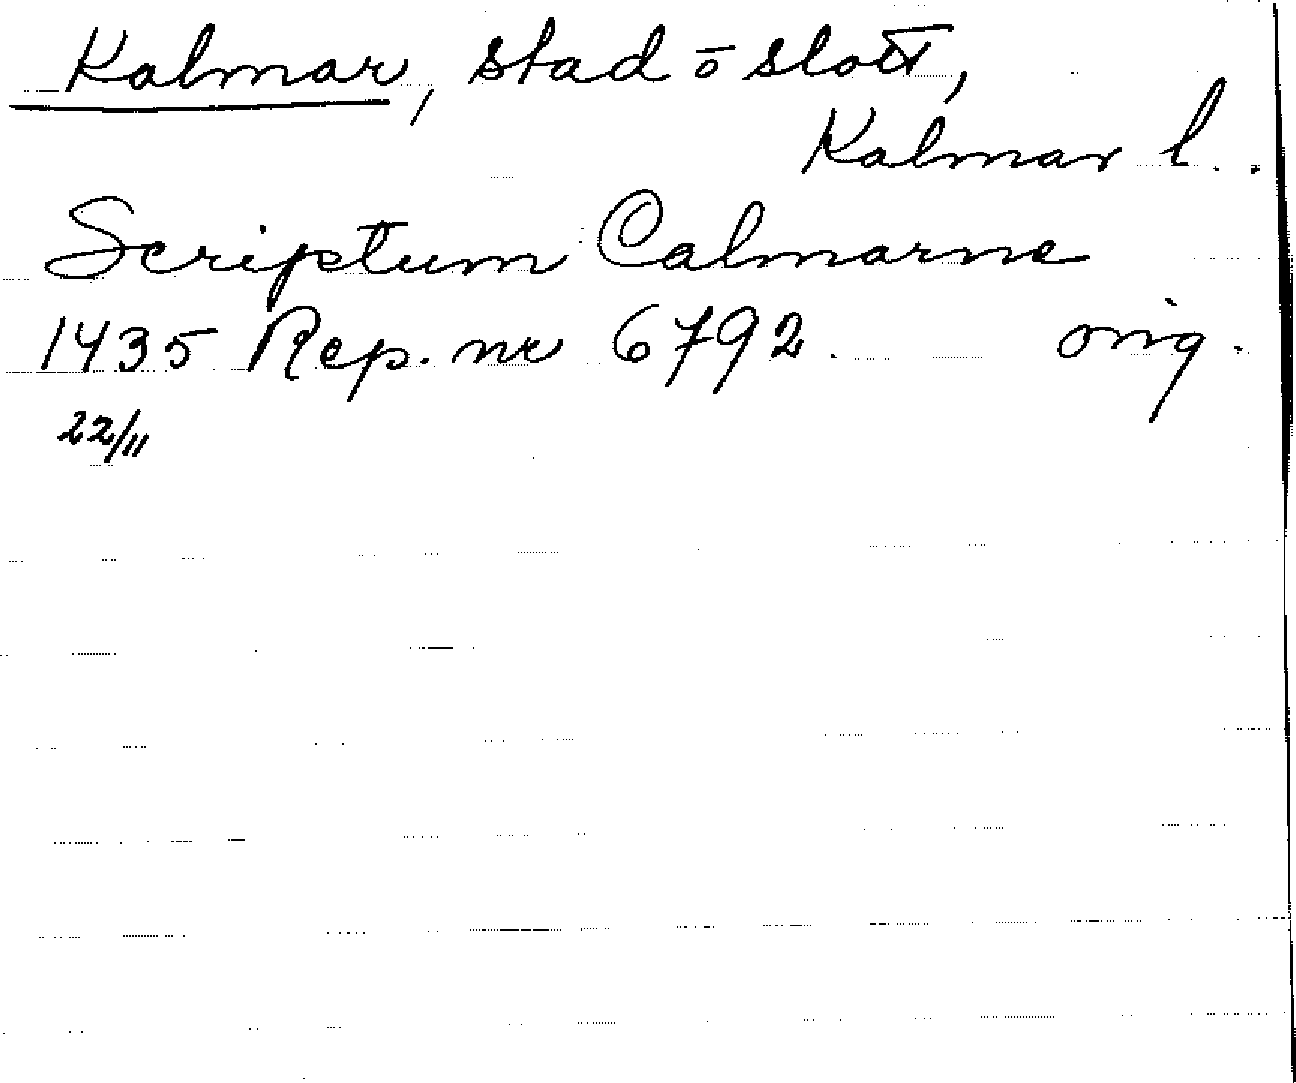 Kalmar, stad o slott,
Kalmar l.
Scriptum Calmarne
1435 Rep. nr 6792. orig.
22/11